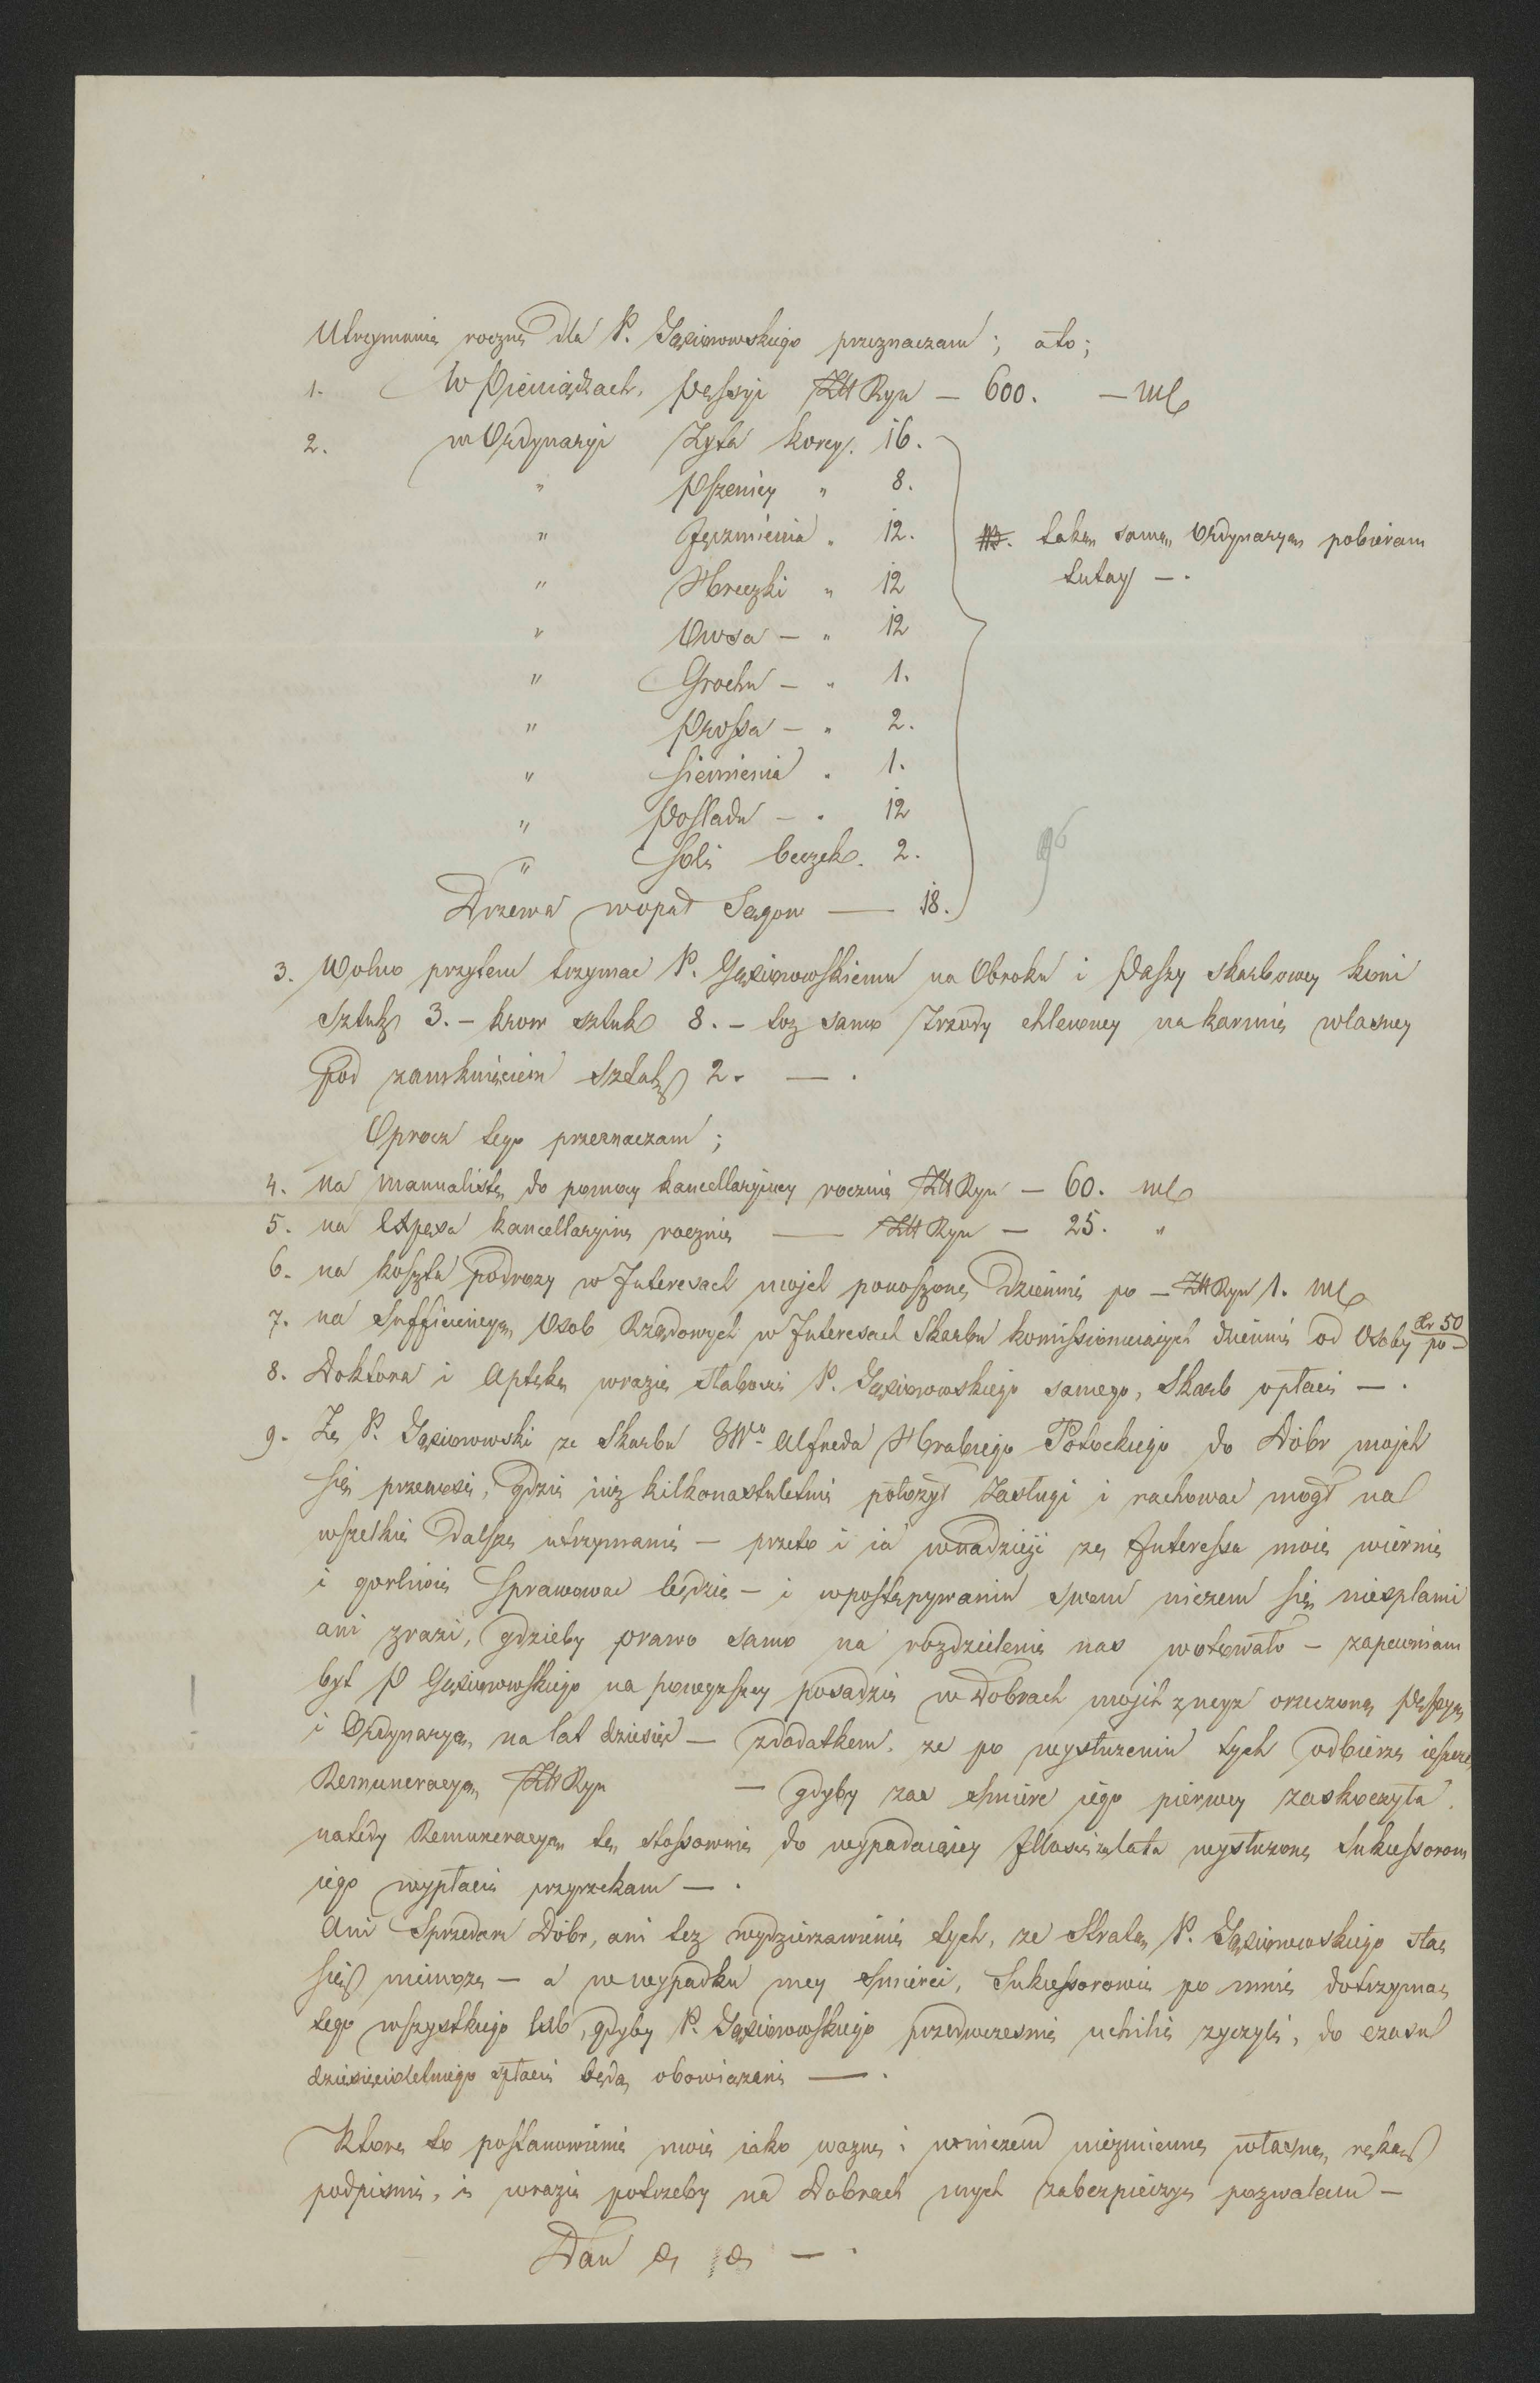 Utrzymanie roczne dla P. Gąsiorowskiego przeznaczam; ato;
1. W Pieniądzach, Pęssyi Złt Ryn — 600. — MC
2. w Ordynaryi Zyta korcy. 16.
" Pszenicy " 8.
" Jęczmienia " 12.
NB. taką samą Ordynaryą pobieram
tutay —.
" Hreczki " 12
" Owsa — " 12
" Grochu — " 1.
" Prossa — " 2.
" Siemienia " 1.
" Posladu — " 12
" Soli beczek. 2.
Drzewa wopał Sągow — 18.
3. Wolno przytem trzymac P. Gąsiorowskiemu na Obroku i Paszy skarbowey koni
sztuk 3. – krow sztuk 8. – toz samo Trzody chlewney na karmie własney
pod zamknięciem sztuk 2. — .
Oprocz tego przeznaczam;
4. na manualistę do pomocy kancellaryiney rocznie Złt Ryn — 60. MC
5. na Expensa kancellaryine rocznie — Złt Ryn — 25. "
6. na koszta podrozy w Interesach mojch ponoszone dziennie po — Złt Ryn 1. MC
7. na Sufficiencyą Osob Rządowych w Interesach Skarbu komissionuiących dziennie od Osoby po — Xr 50
8. Doktora i Aptekę wrazie słabosci P. Gąsiorowskiego samego, Skarb opłaci — .
9. Ze P. Gąsiorowski ze Skarbu JWo Alfreda Hrabiego Potockiego do Dobr mojch
się przenosi, gdzie iuz kilkonastuletnie położył Zasługi i rachowac mogł na
wszelkie dalsze utrzymanie — przeto i ia wnadzieji ze Interessa moie wiernie
i gorliwie sprawowac będzie — i wpostępywaniu swem niczem się niesplami
ani zrazi, gdzieby prawo samo na rozdzielenie nas wotowało — zapewniam
byt P Gąsiorowskiego na powyzszey posadzie w Dobrach mojch zwyz orzeczoną Pęssyą
i Ordynaryą, na lat dziesięc — zdodatkem, ze po wysłuzeniu tych odbierze ieszcze
Remuneracyą Złt Ryn — gdyby zas smierc iego pierwey zaskoczyła,
natedy Remuneracyą tę stossownie do wypadaiącey Illosci za lata wysłuzone Sukcessorom
iego wypłacic przyrzekam — .
Ani Sprzedarz Dobr, ani tez wydzierzawienie tych, ze Stratą P. Gąsiorowskiego stac
się niemoze — a wwypadku mey smierci, Sukcessorowie po mnie dotrzymac
tego wszystkiego lub, gdyby P. Gąsiorowskiego przedwczesnie uchilic zyczyli, do czasu
dziesięcioletniego spłacic będą obowiązani — .
Ktore to postanowienie moie iako wazne i wniczem niezmienne własną ręką
podpisuię, i wrazie potrzeby na Dobrach mych zabezpieczyc pozwalam —
Dan &c &c — .